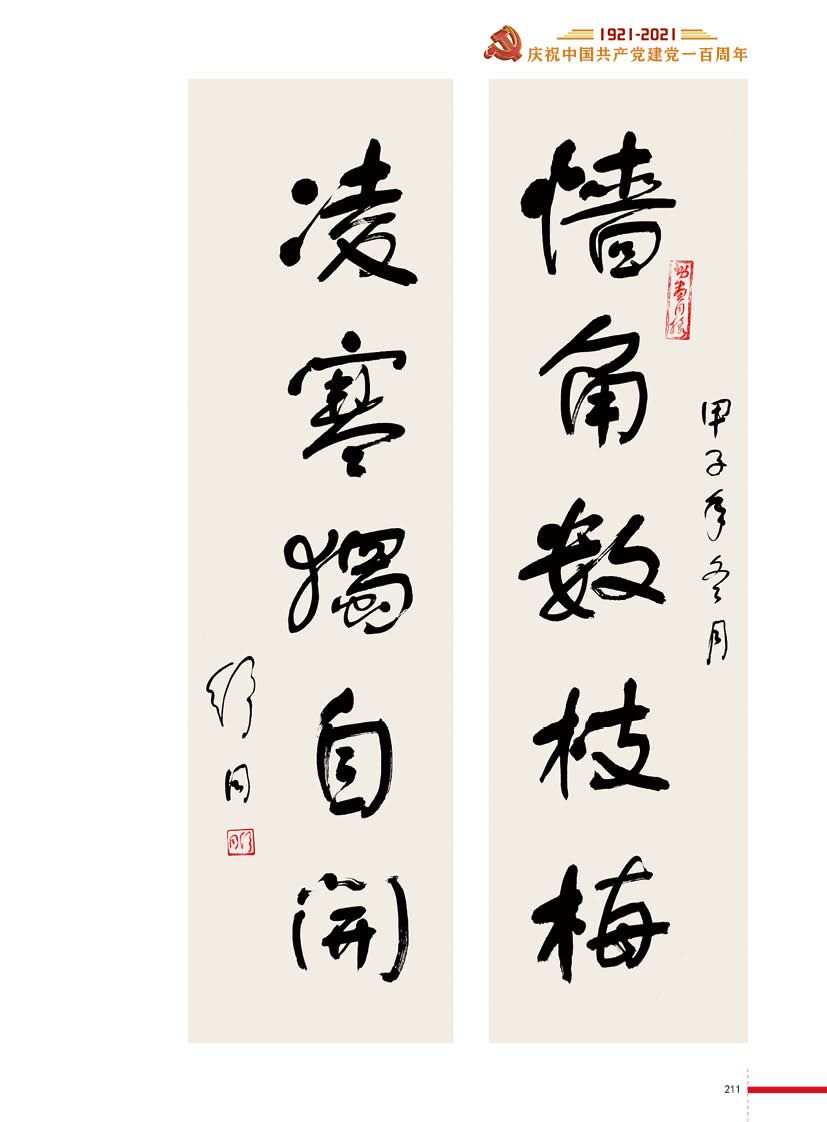 1921-2021
庆祝中国共产党建党一百周年
甲子年冬月
墙角数枝梅
凌寒獨自開
舒同
舒同
211